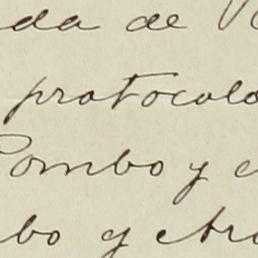 da de V
protocolo
Pombo y
bo y Aro